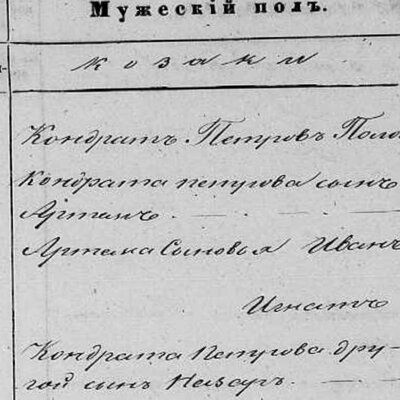 Мужескій полъ.
козаки
Кондратъ Петровъ Поло
Кондрата петрова сынъ
Артемъ.
Артема Сыновья Иванъ
Игнатъ
Кондрата Петрова дру-
гой сынъ Назаръ.